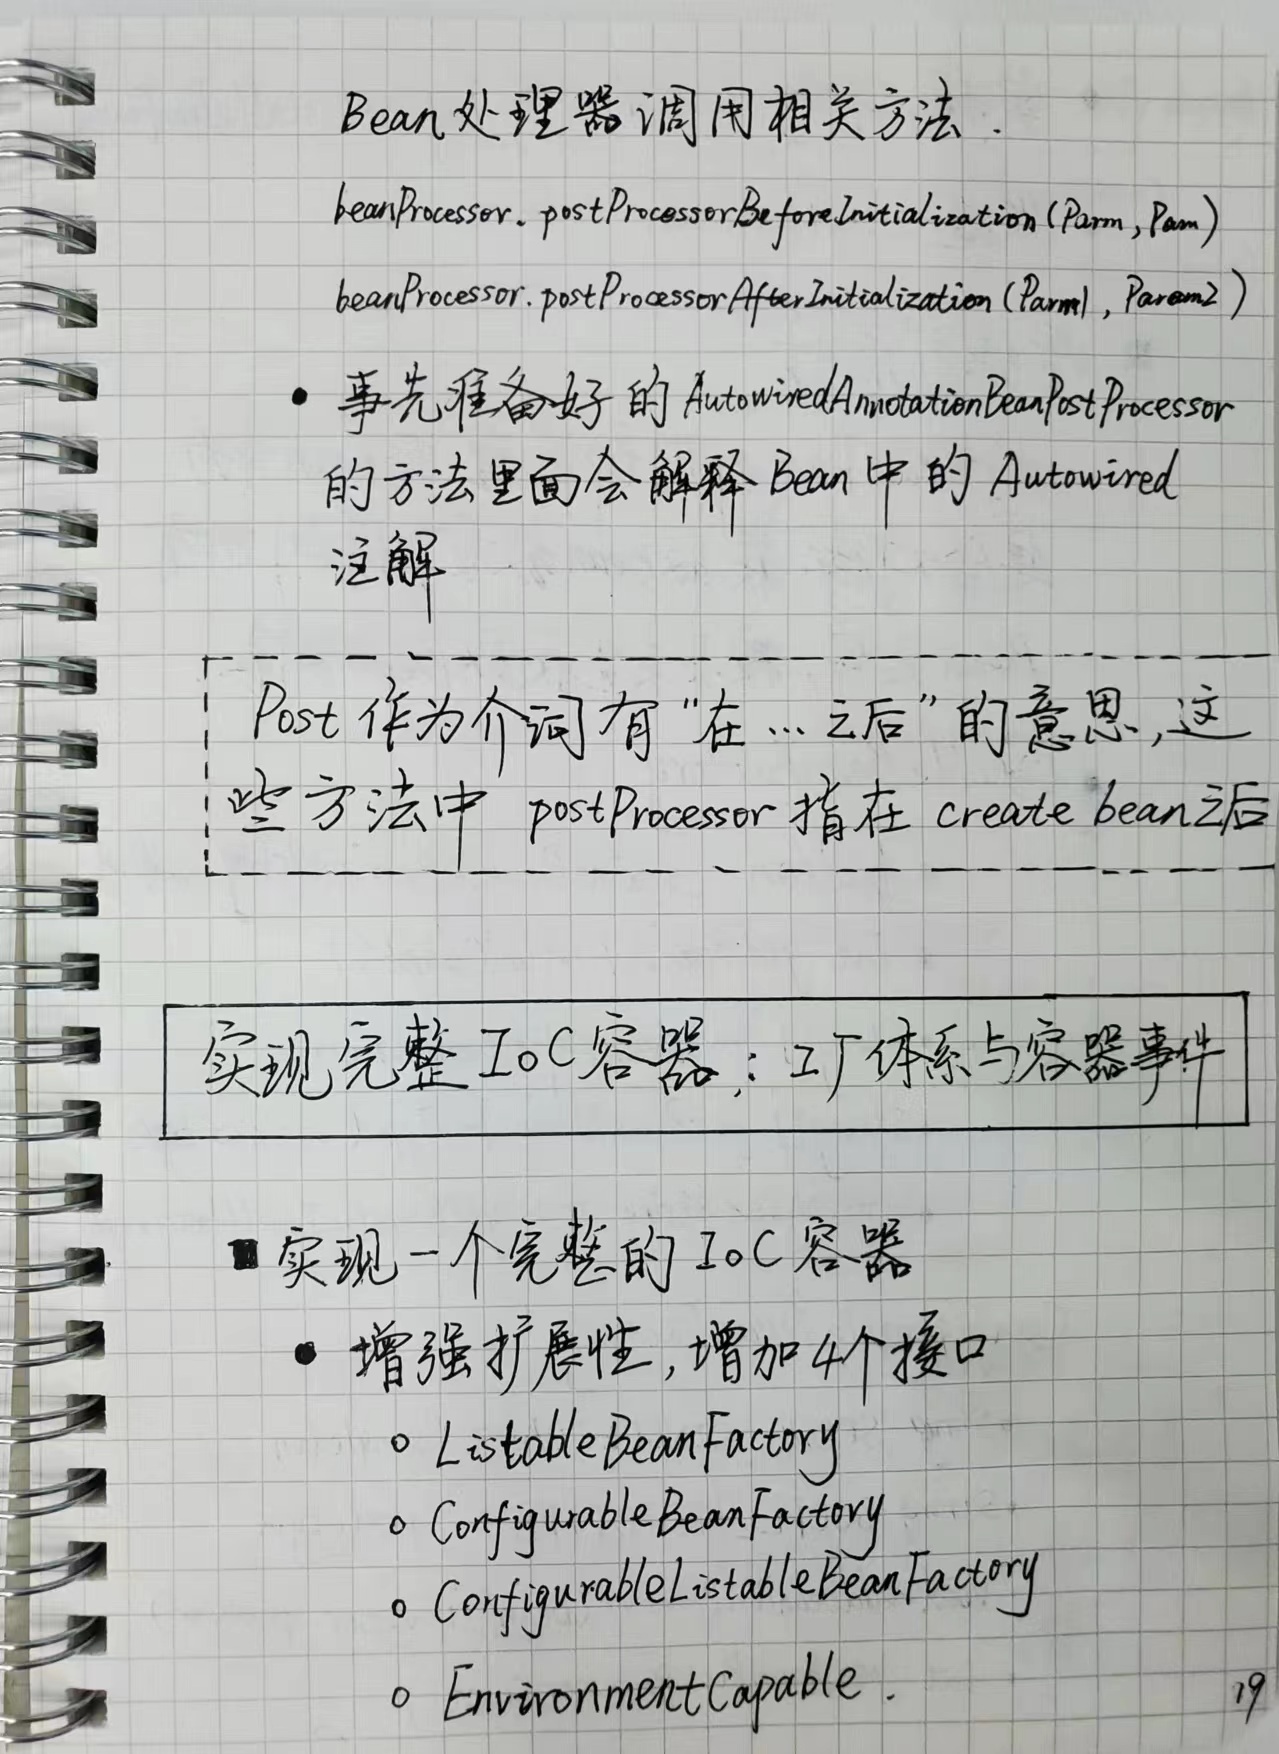 Bean处理器调用相关方法.
beanProcessor.postProcessorBeforeInitialization(Parm,Pam)
beanProcessor.postProcessorAfterInitialization(Parm1,Param2)
• 事先准备好的AutowiredAnnotationBeanPostProcessor
的方法里面会解释Bean中的Autowired
注解
Post作为介词有“在…之后”的意思,这
些方法中 postProcessor指在 create bean之后
实现完整IoC容器:工厂体系与容器事件
■ 实现一个完整的IoC容器
• 增强扩展性,增加4个接口
○ ListableBeanFactory
○ ConfigurableBeanFactory
○ ConfigurableListableBeanFactory
○ EnvironmentCapable.
19